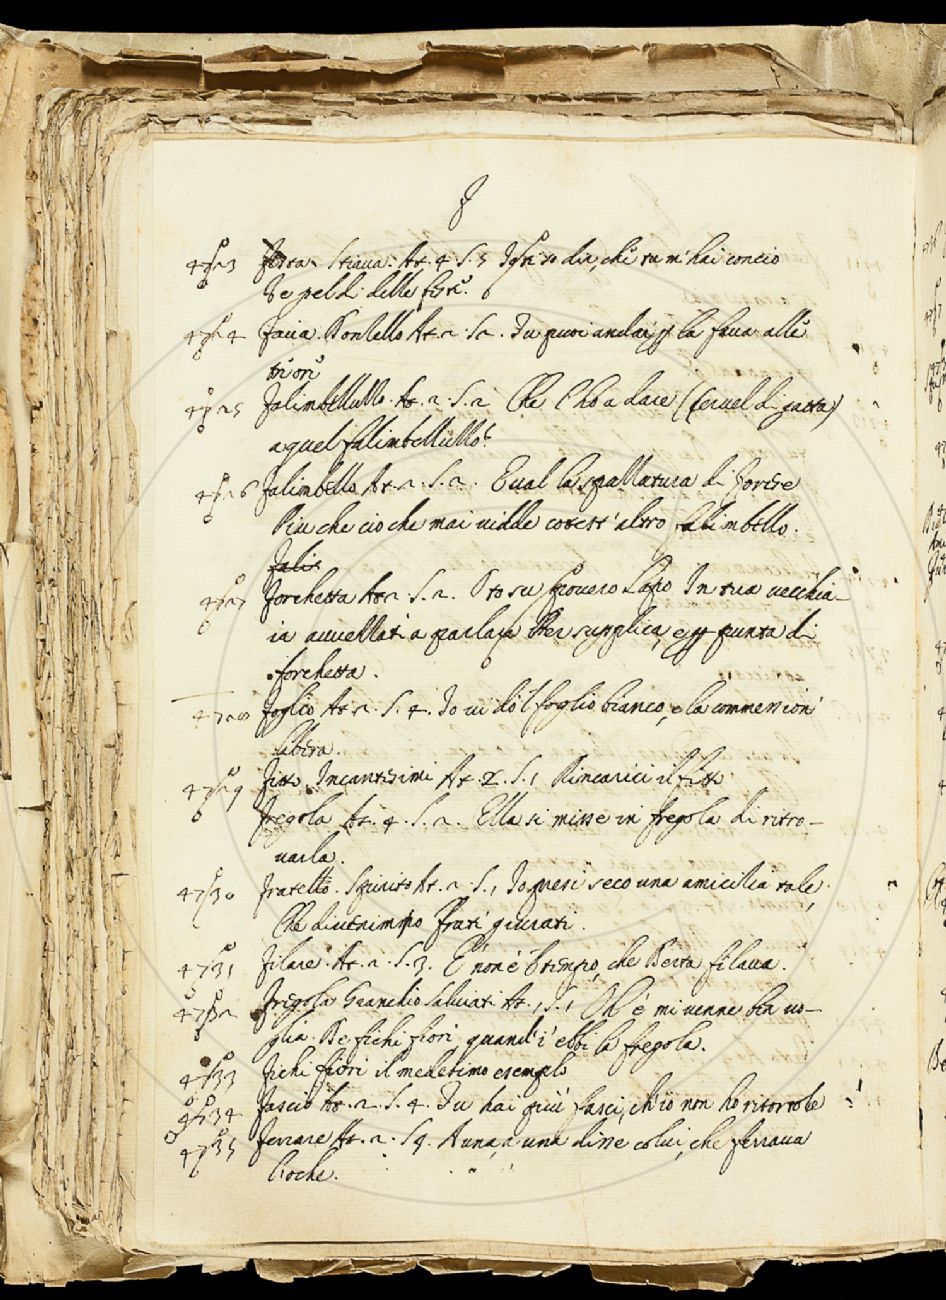 F
4723 Festa. Stiava. At. 4 S. 5 che tu m'hai concio
pel dì delle feste.
4724 Fava. Donzello At. 2 S. 2. Tu puoi andar per la fava alle
4725 Falimbelluzzo. At. 2 S. 2 Che l'ho a dare (cervel di gatta)
a quel falimbelluzzo?
4726 Falimbello At. 2. S. 2. E val la spallatura di
Piu che cio che mai vidde cotest'altro falimbello.
Falis
4727 Forchetta At 2 S. 2. Or su povero Lapo In tua vecchia-
ia avvezzati a parlar per supplica, e per punta di
forchetta.
4728 Foglio At 2. S. 4. Io vi do 'l foglio bianco, e la commession
libera.
4729 Fitto. Incantesimi At. 2. S. 1 Rincarici il fitto
Fregola At. 4. S. 2. Ella si misse in fregola di ritro-
varla.
4730 Fratello. Spirito At. 2 S. 1 Io presi seco una amicitia tale,
Che diventammo frati giurati.
4731 Filare. At. 2. S. 3. E' non è 'l tempo, che Berta filava.
4732 Fregola Granchio Salviati At. 1 S. 1 Oh e' mi venne ben vo-
glia De fichi fiori, quand'i' ebbi la fregola.
4733 Fichi fiori il medesimo esempio
4734 Fascio At. 2. S. 4. Tu hai più fasci, ch'io non ho ritortole
4735 Ferrare At. 2. S 4. A una, a una disse colui, che ferrava
l'oche.